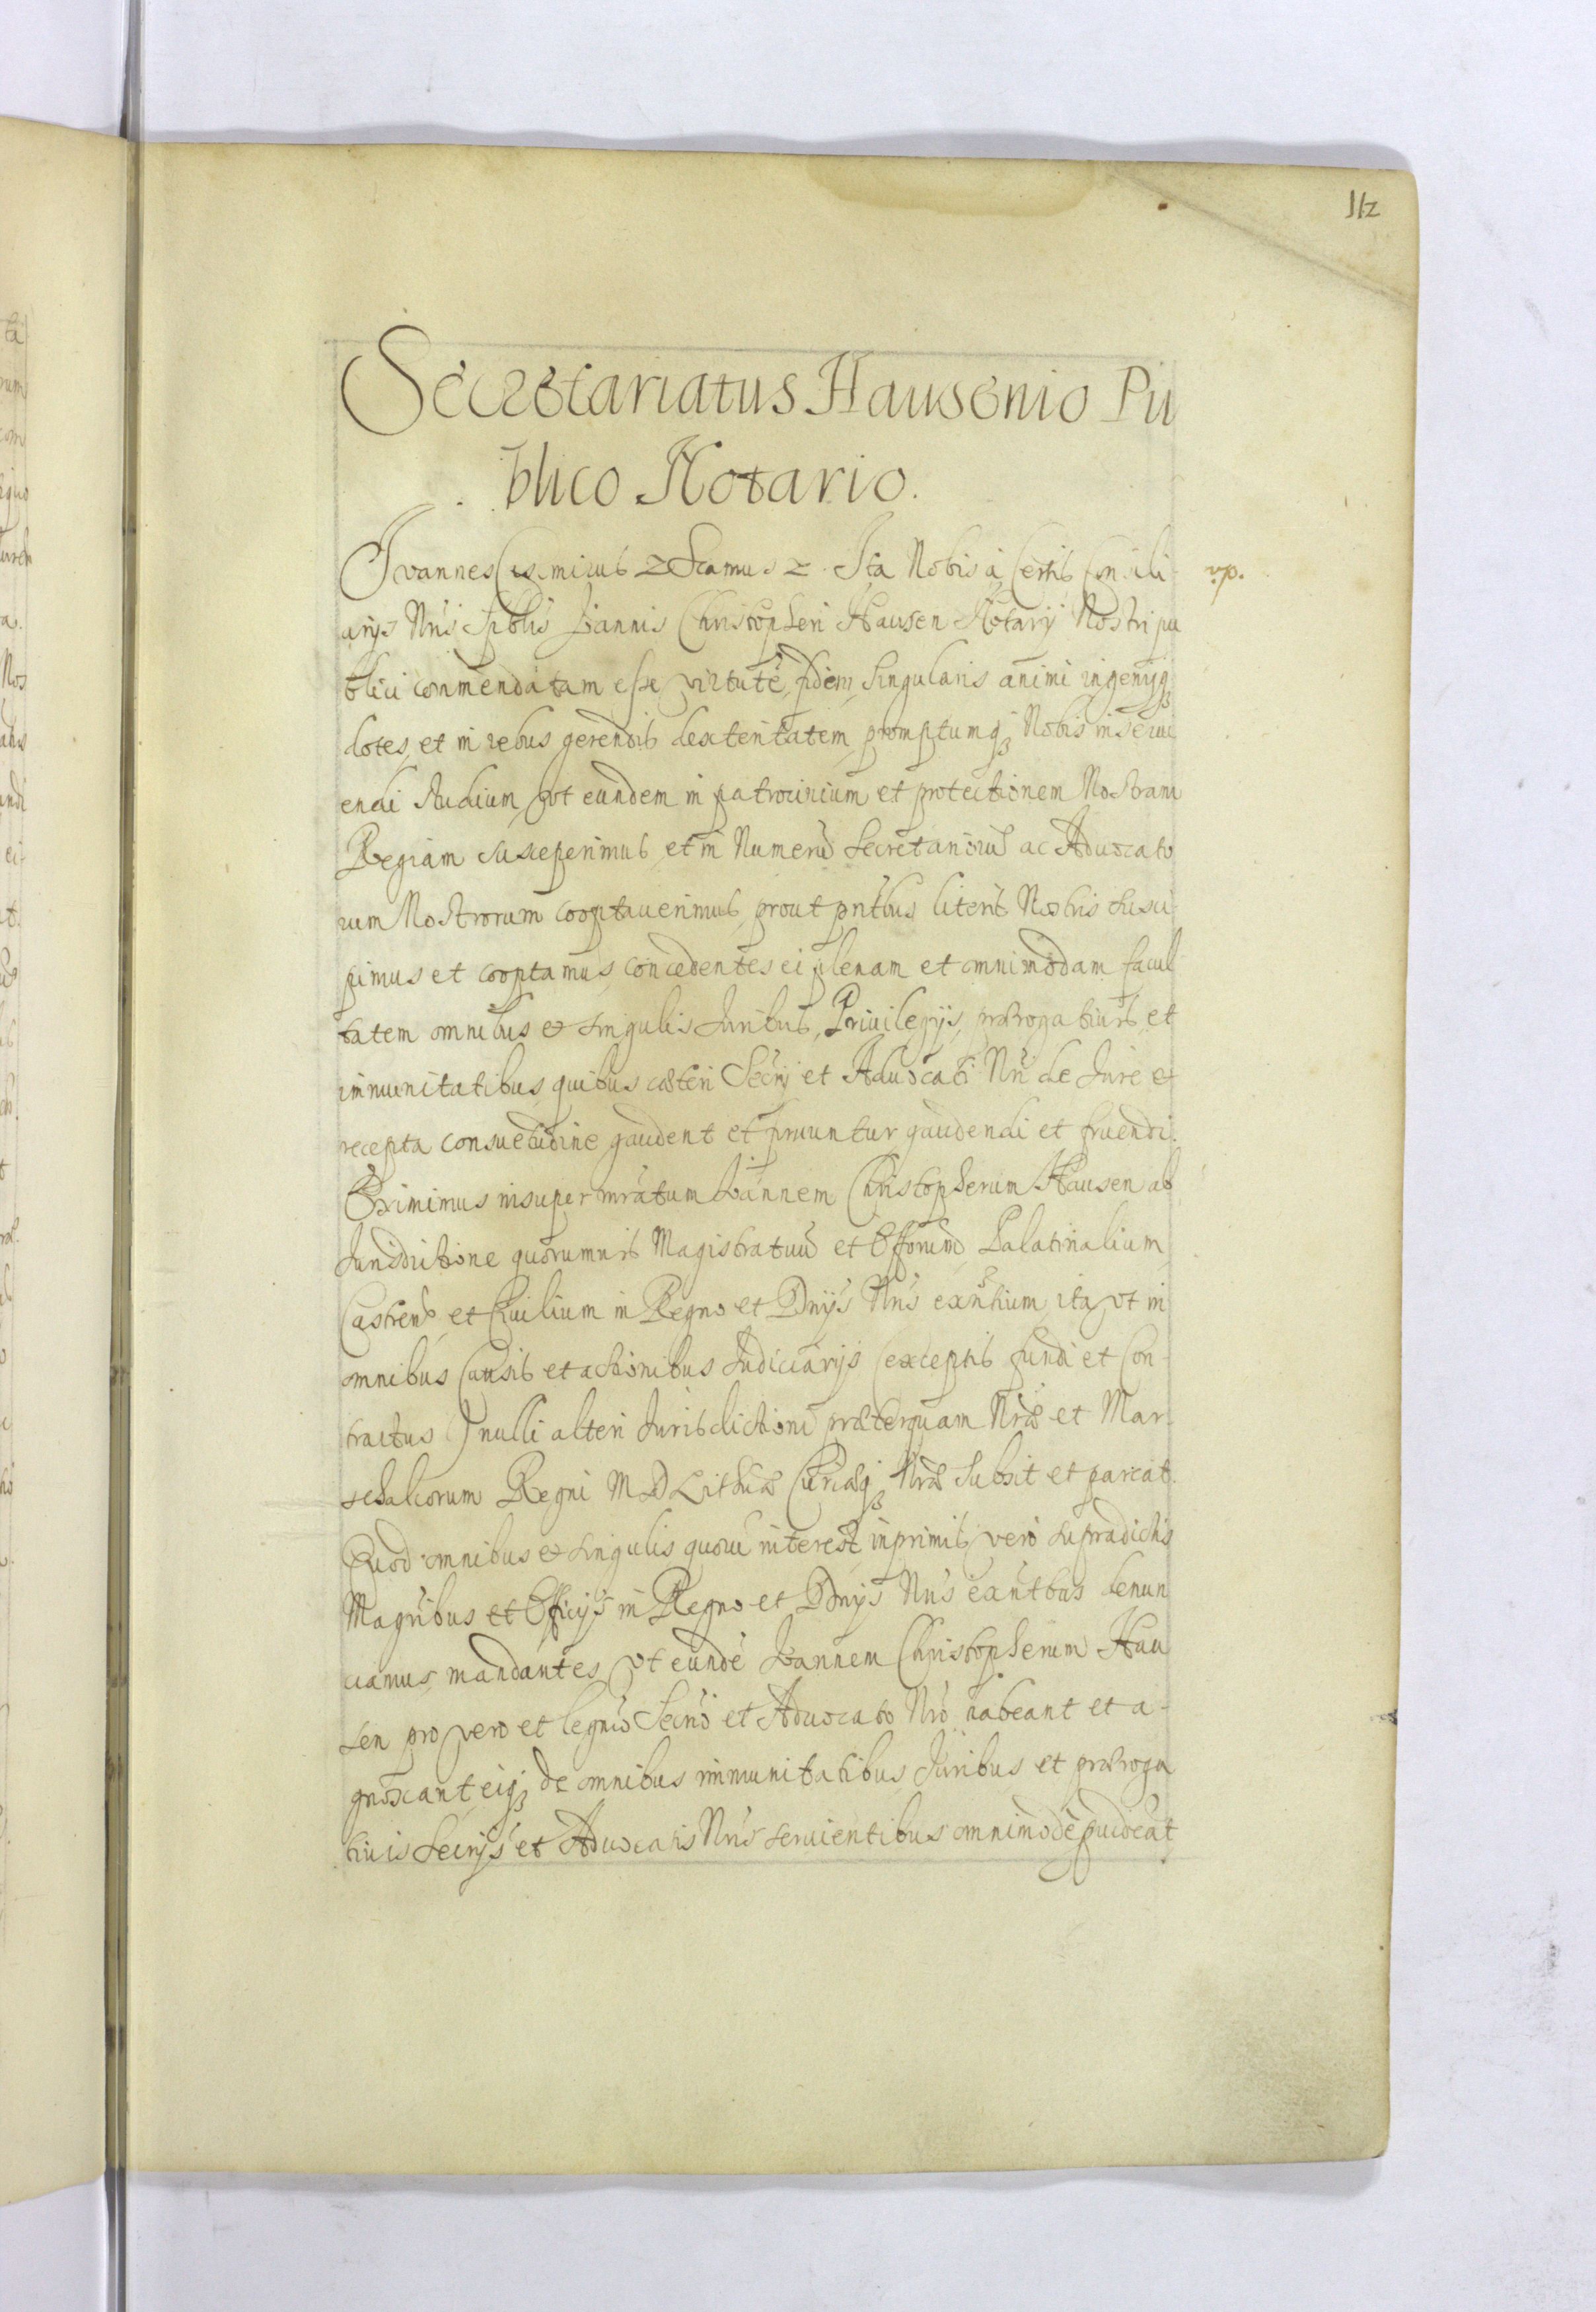 112
Secretariatus Hausenio Pu
blico Notario.
Joannes Casimirus z Scamus z. Ita Nobis à Certis Consili-
arijs Nris Spblis Joannis Christopheri Hausen Notarij Nostri pu
blici commendatam esse virtutē, fidem, singularis animi ingenijq3
dotes, et in rebus gerendis dexteritatem, promptumq3 Nobis inserui
endi studium, vt eundem in patrocinium et protectionem Nostram
Regiam susceperimus, et in Numerū Secretariorū ac Aduocato
rum Nostrorum cooptauerimus, prout pntbus literis Nostris susci-
pimus et cooptamus, concedentes ei plenam et omnimodam facul
tatem omnibus et singulis Juribus, Priuilegijs, prærogatiuis, et
immunitatibus, quibus cæteri Secrij et Aduocati Nri de Jure et
recepta consuetudine gaudent et fruuntur, gaudendi et fruendi.
Eximimus insuper mratum Joannem Christopherum Hausen ab
Jurisdictione quorumuis Magistratuū et Offorum Palatinalium,
Castrens, et Ciuilium in Regno et Dnijs Nris exntium, ita vt in
omnibus Causis et actionibus Judiciarijs (exceptis fundi et Con-
tractus) nulli alteri Jurisdictioni præterquam Nræ et Mar
schalcorum Regni M D Lithuæ Curiæq3 Nræ subsit et pareat.
Quod omnibus et singulis quorū interest, inprimis vero supradictis
Magribus et Officijs in Regno et Dnijs Nris exantbus denun
ciamus, mandantes, vt eundē Joannem Christopherum Hau
sen pro vero et legmo Secrio et Aduocato Nro habeant et a-
gnoscant, eiq3 de omnibus immunitatibus Juribus et præroga
tiuis Secrijs et Aduocatis Nris seruientibus omnimodè prouideāt